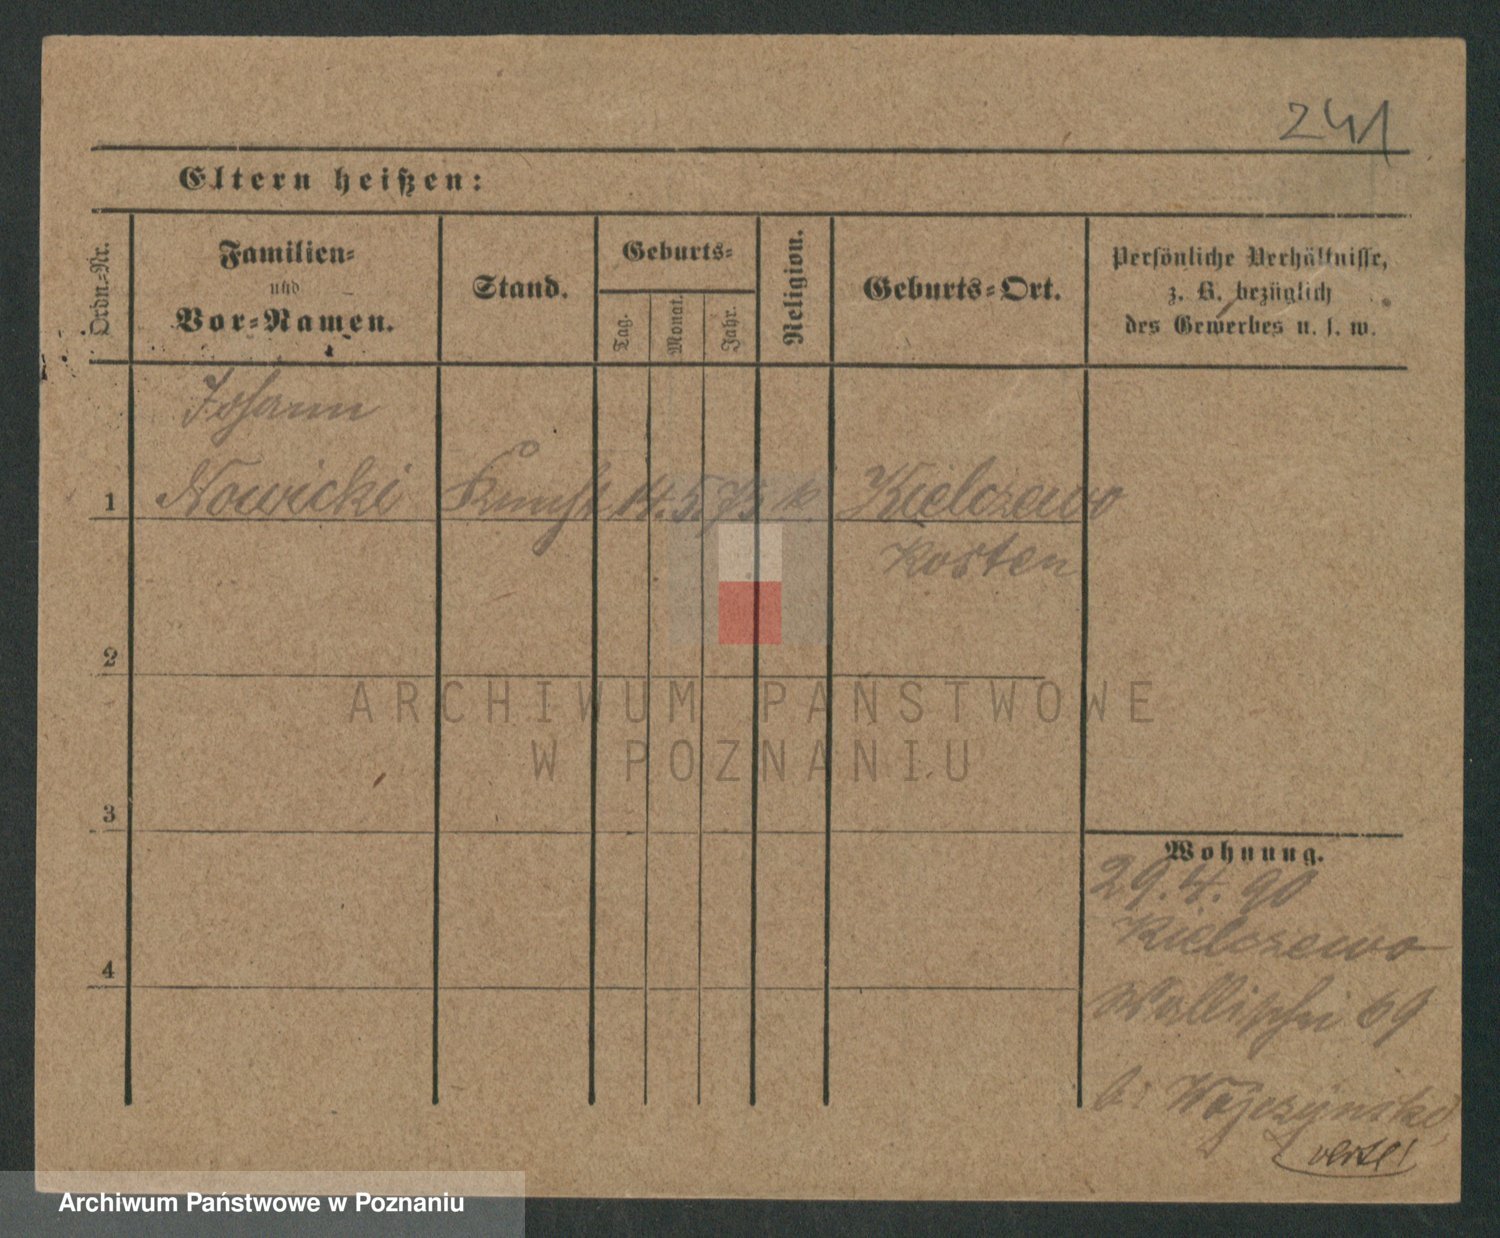 241
Eltern heißen:
Ordn.-Nr.
Familien-
und
Vor-Namen.
Stand.
Geburts-
Tag.
Monat.
Jahr.
Religion.
Geburts-Ort.
Persönliche Verhältnisse,
z. B. bezüglich
des Gewerbes u. s. w.
Johann
1 Nowicki 14. 5. 75 k. Kielczewo
Kosten
2
ARCHIWUM PAŃSTWOWE
W POZNANIU
3
Wohnung.
29. 4. 90
Kielczewo
4
Wallischei 69
b. Wojczynski
Archiwum Państwowe w Poznaniu